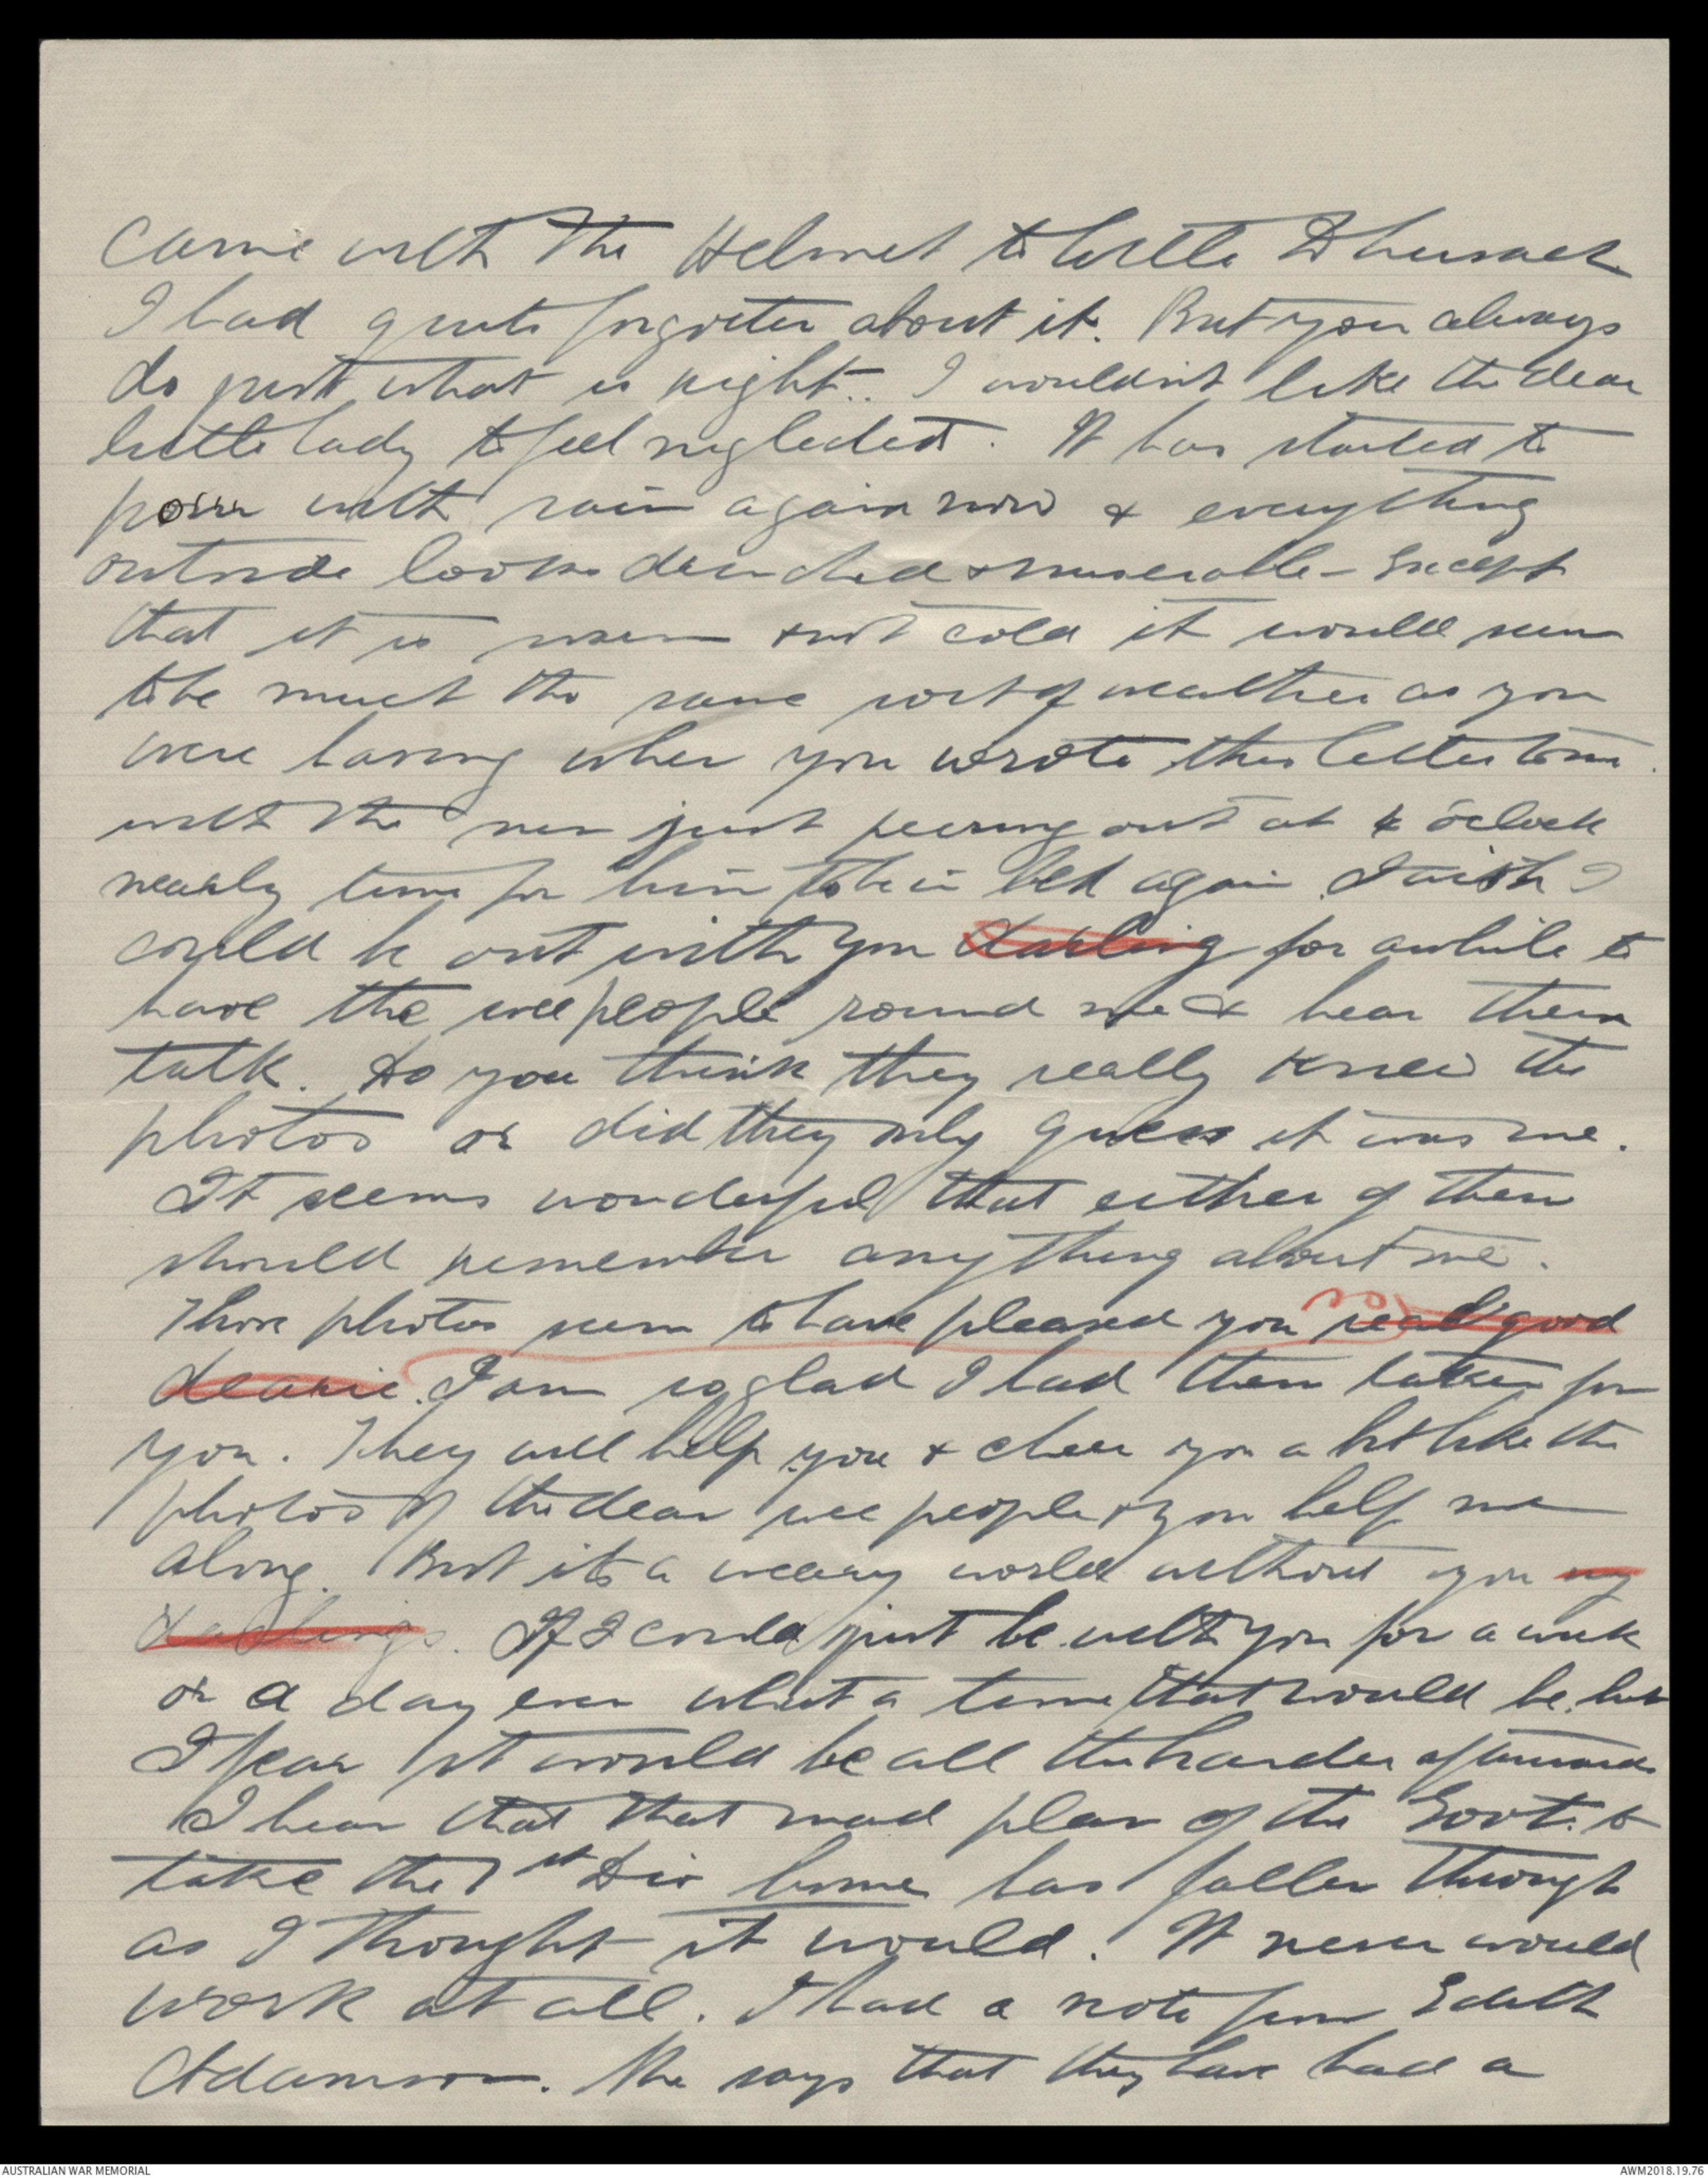 came with the Helmet to little
I had quite forgotten about it. But you always
do just what is right.. I wouldn't like the dear
little lady to feel neglected. It has started to
pour with rain again now & everything
outside looks drenched & miserable - Except
that it is warm & not cold it would seem
to be much the same sort of weather as you
were having when you wrote this letter to me.
with the sun just peering out at 4 o'clock
nearly time for him to be in bed again. I wish I
could be out with you darling for awhile to
have the wee people round me & hear them
talk. Do you think they really knew the
photos or did they only guess it was me.
It seems wonderful that either of them
should remember anything about me.
Those photos seem to have pleased you real good
dearie. I am so glad I had them taken for
you. They will help you & cheer you a bit like the
photos of the dear wee people & you help me
along. But its a weary world without you my
darlings. If I could just be with you for a week
or a day even what a time that would be. but
I fear it would be all the harder afterwards.
I hear that that mad plan of the Govt. to
take the 1st Div home has fallen through
as I thought it would. It never would
work at all. I had a note from Edith
Adamson. She says that they have had a
AUSTRALIAN WAR MEMORIAL
AWM2018.19.76